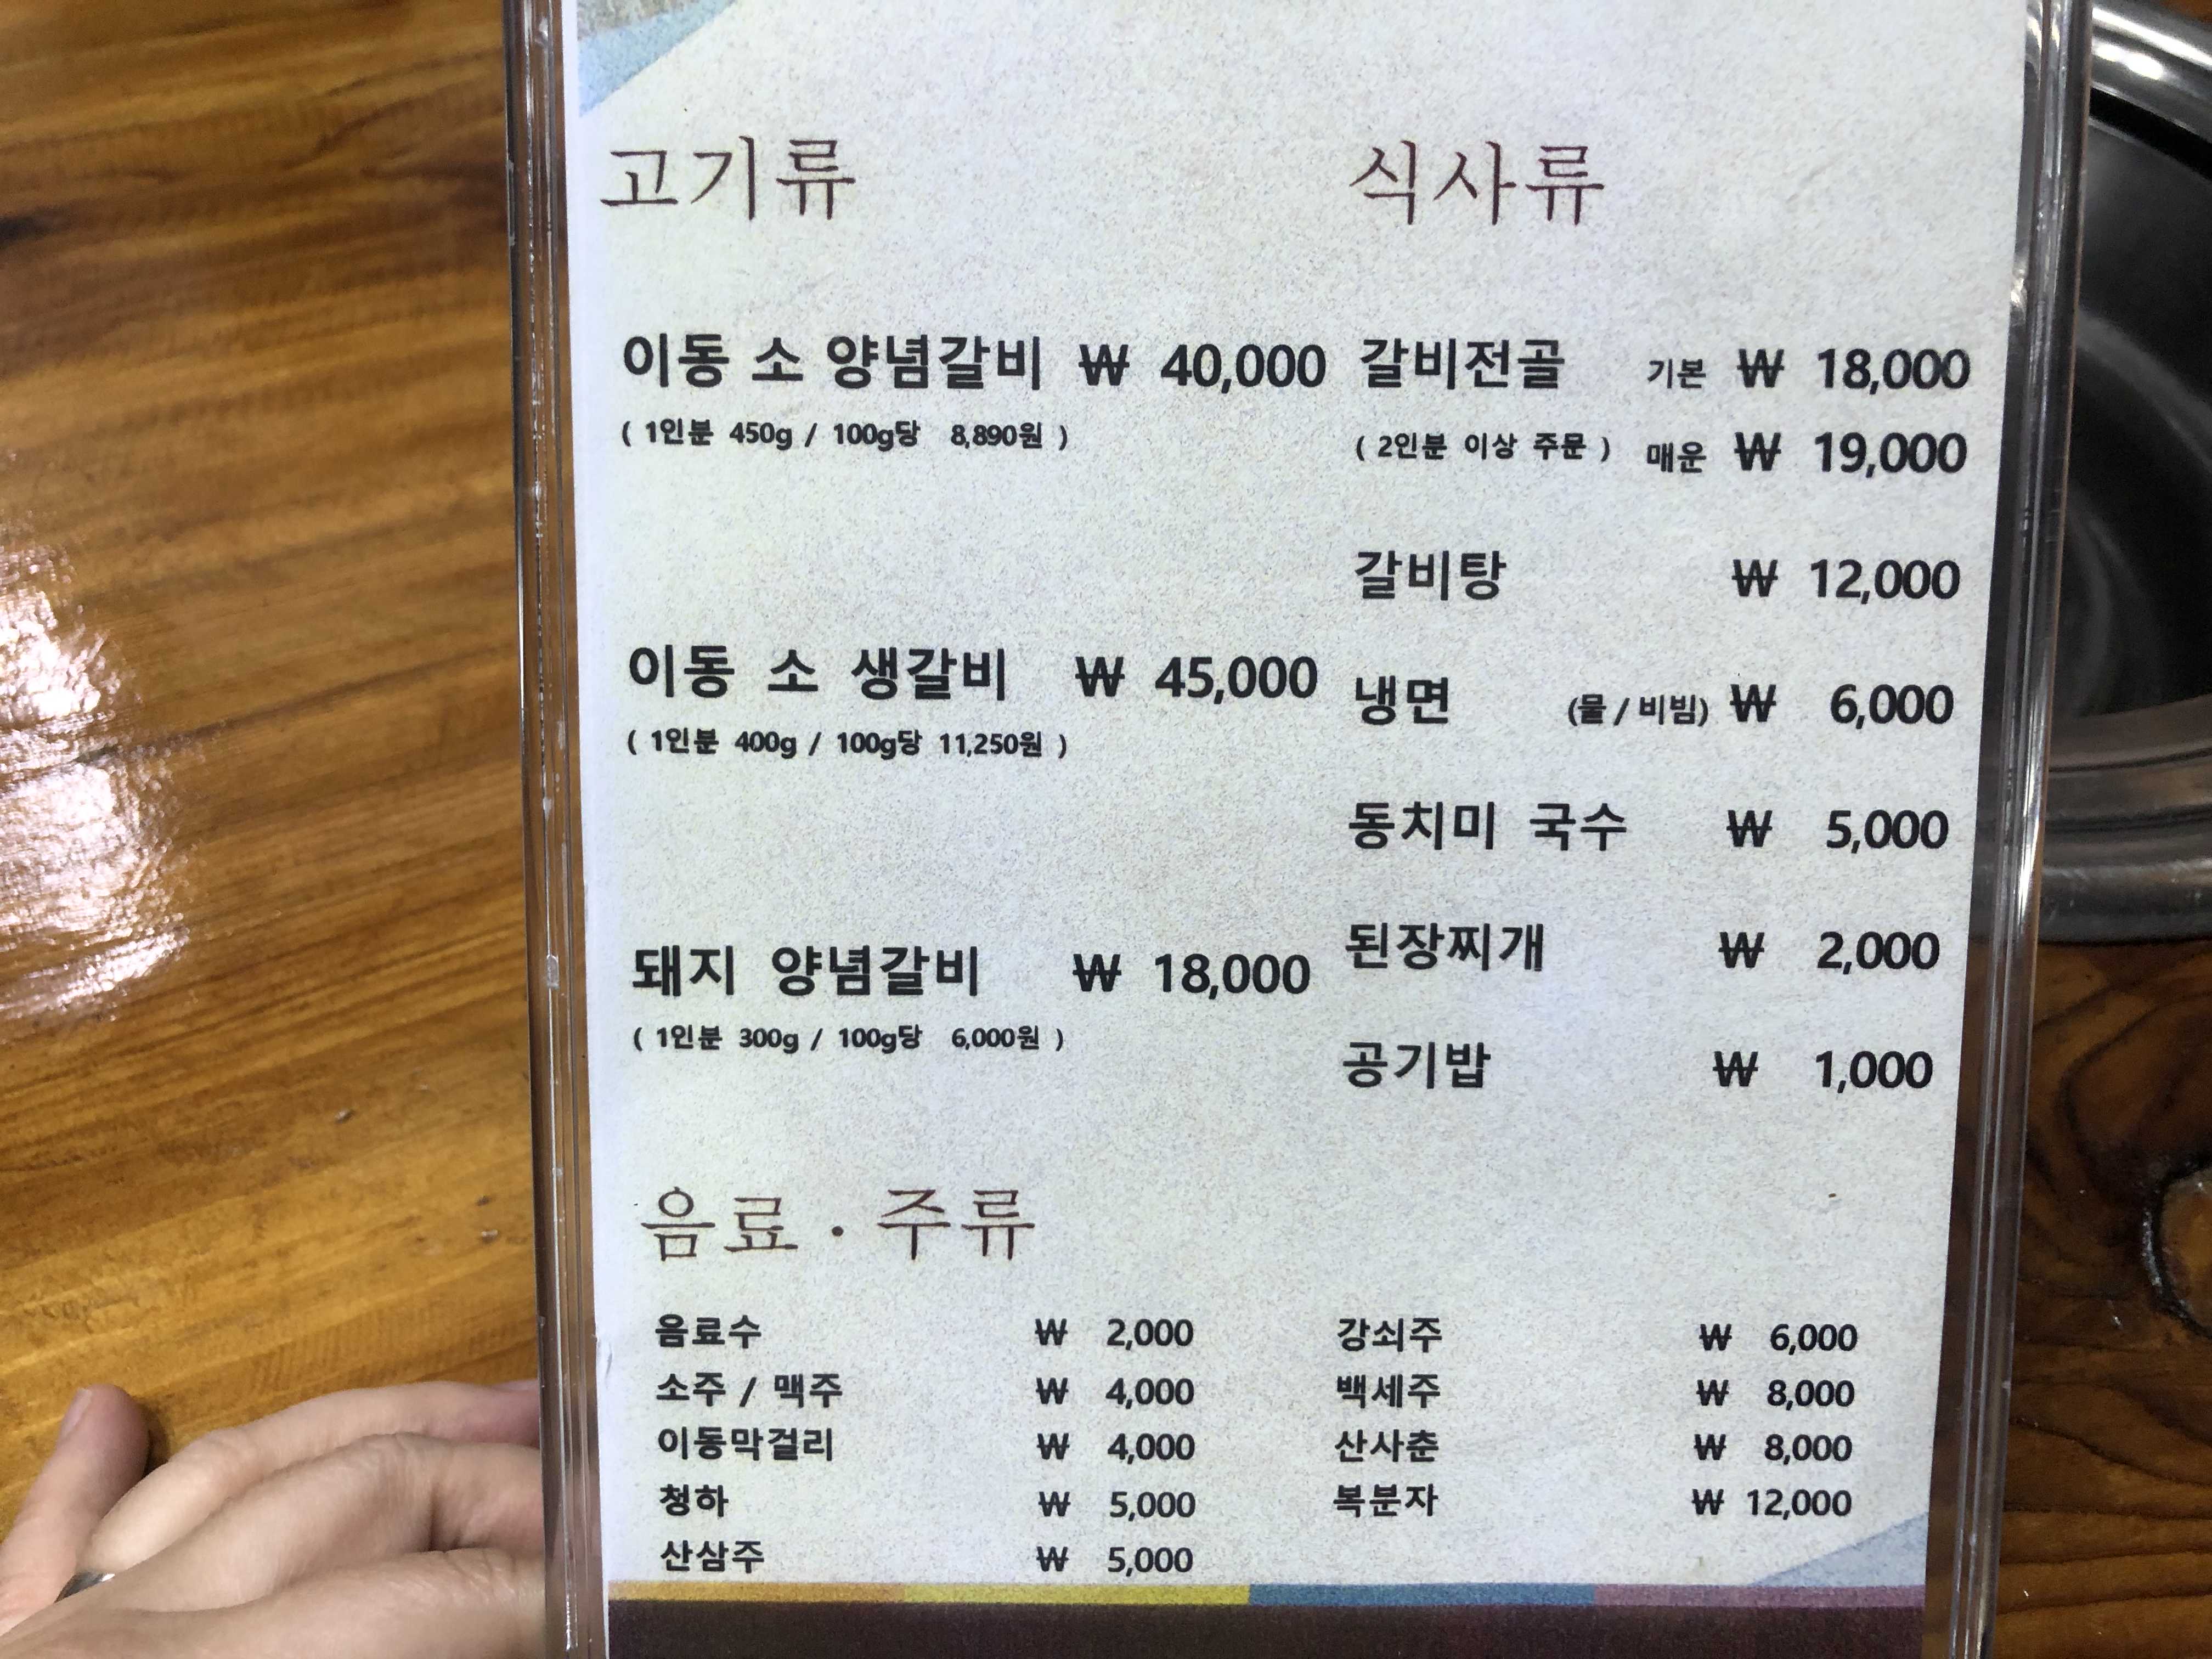 고기류
이동 소 양념갈비 ₩ 40,000
( 1인분 450g / 100g당 8,890원 )
이동 소 생갈비 ₩ 45,000
( 1인분 400g / 100g당 11,250원 )
돼지 양념갈비 ₩ 18,000
( 1인분 300g / 100g당 6,000원 )
식사류
갈비전골 기본 ₩ 18,000
( 2인분 이상 주문 ) 매운 ₩ 19,000
갈비탕 ₩ 12,000
냉면 (물 / 비빔) ₩ 6,000
동치미 국수 ₩ 5,000
된장찌개 ₩ 2,000
공기밥 ₩ 1,000
음료 · 주류
음료수 ₩ 2,000
소주 / 맥주 ₩ 4,000
이동막걸리 ₩ 4,000
청하 ₩ 5,000
산삼주 ₩ 5,000
강쇠주 ₩ 6,000
백세주 ₩ 8,000
산사춘 ₩ 8,000
복분자 ₩ 12,000